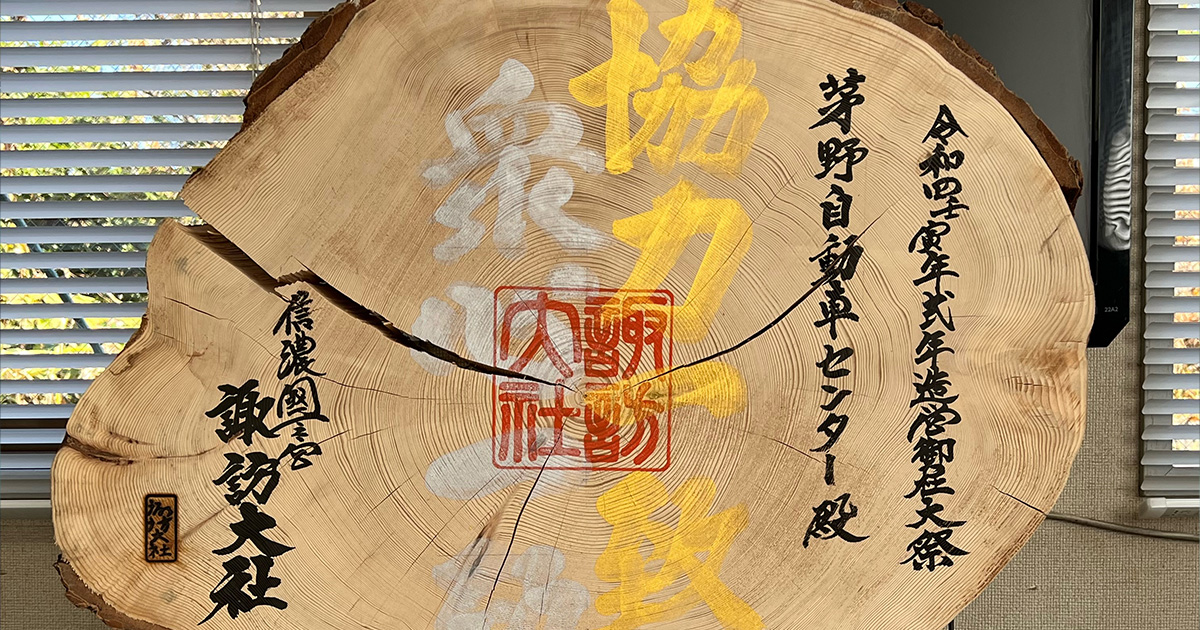 令和四壬寅年式年造営御柱大祭
茅野自動車センター 殿
協力一致
衆心一
諏訪大社
信濃國一之宮
諏訪大社
諏訪大社
22A2